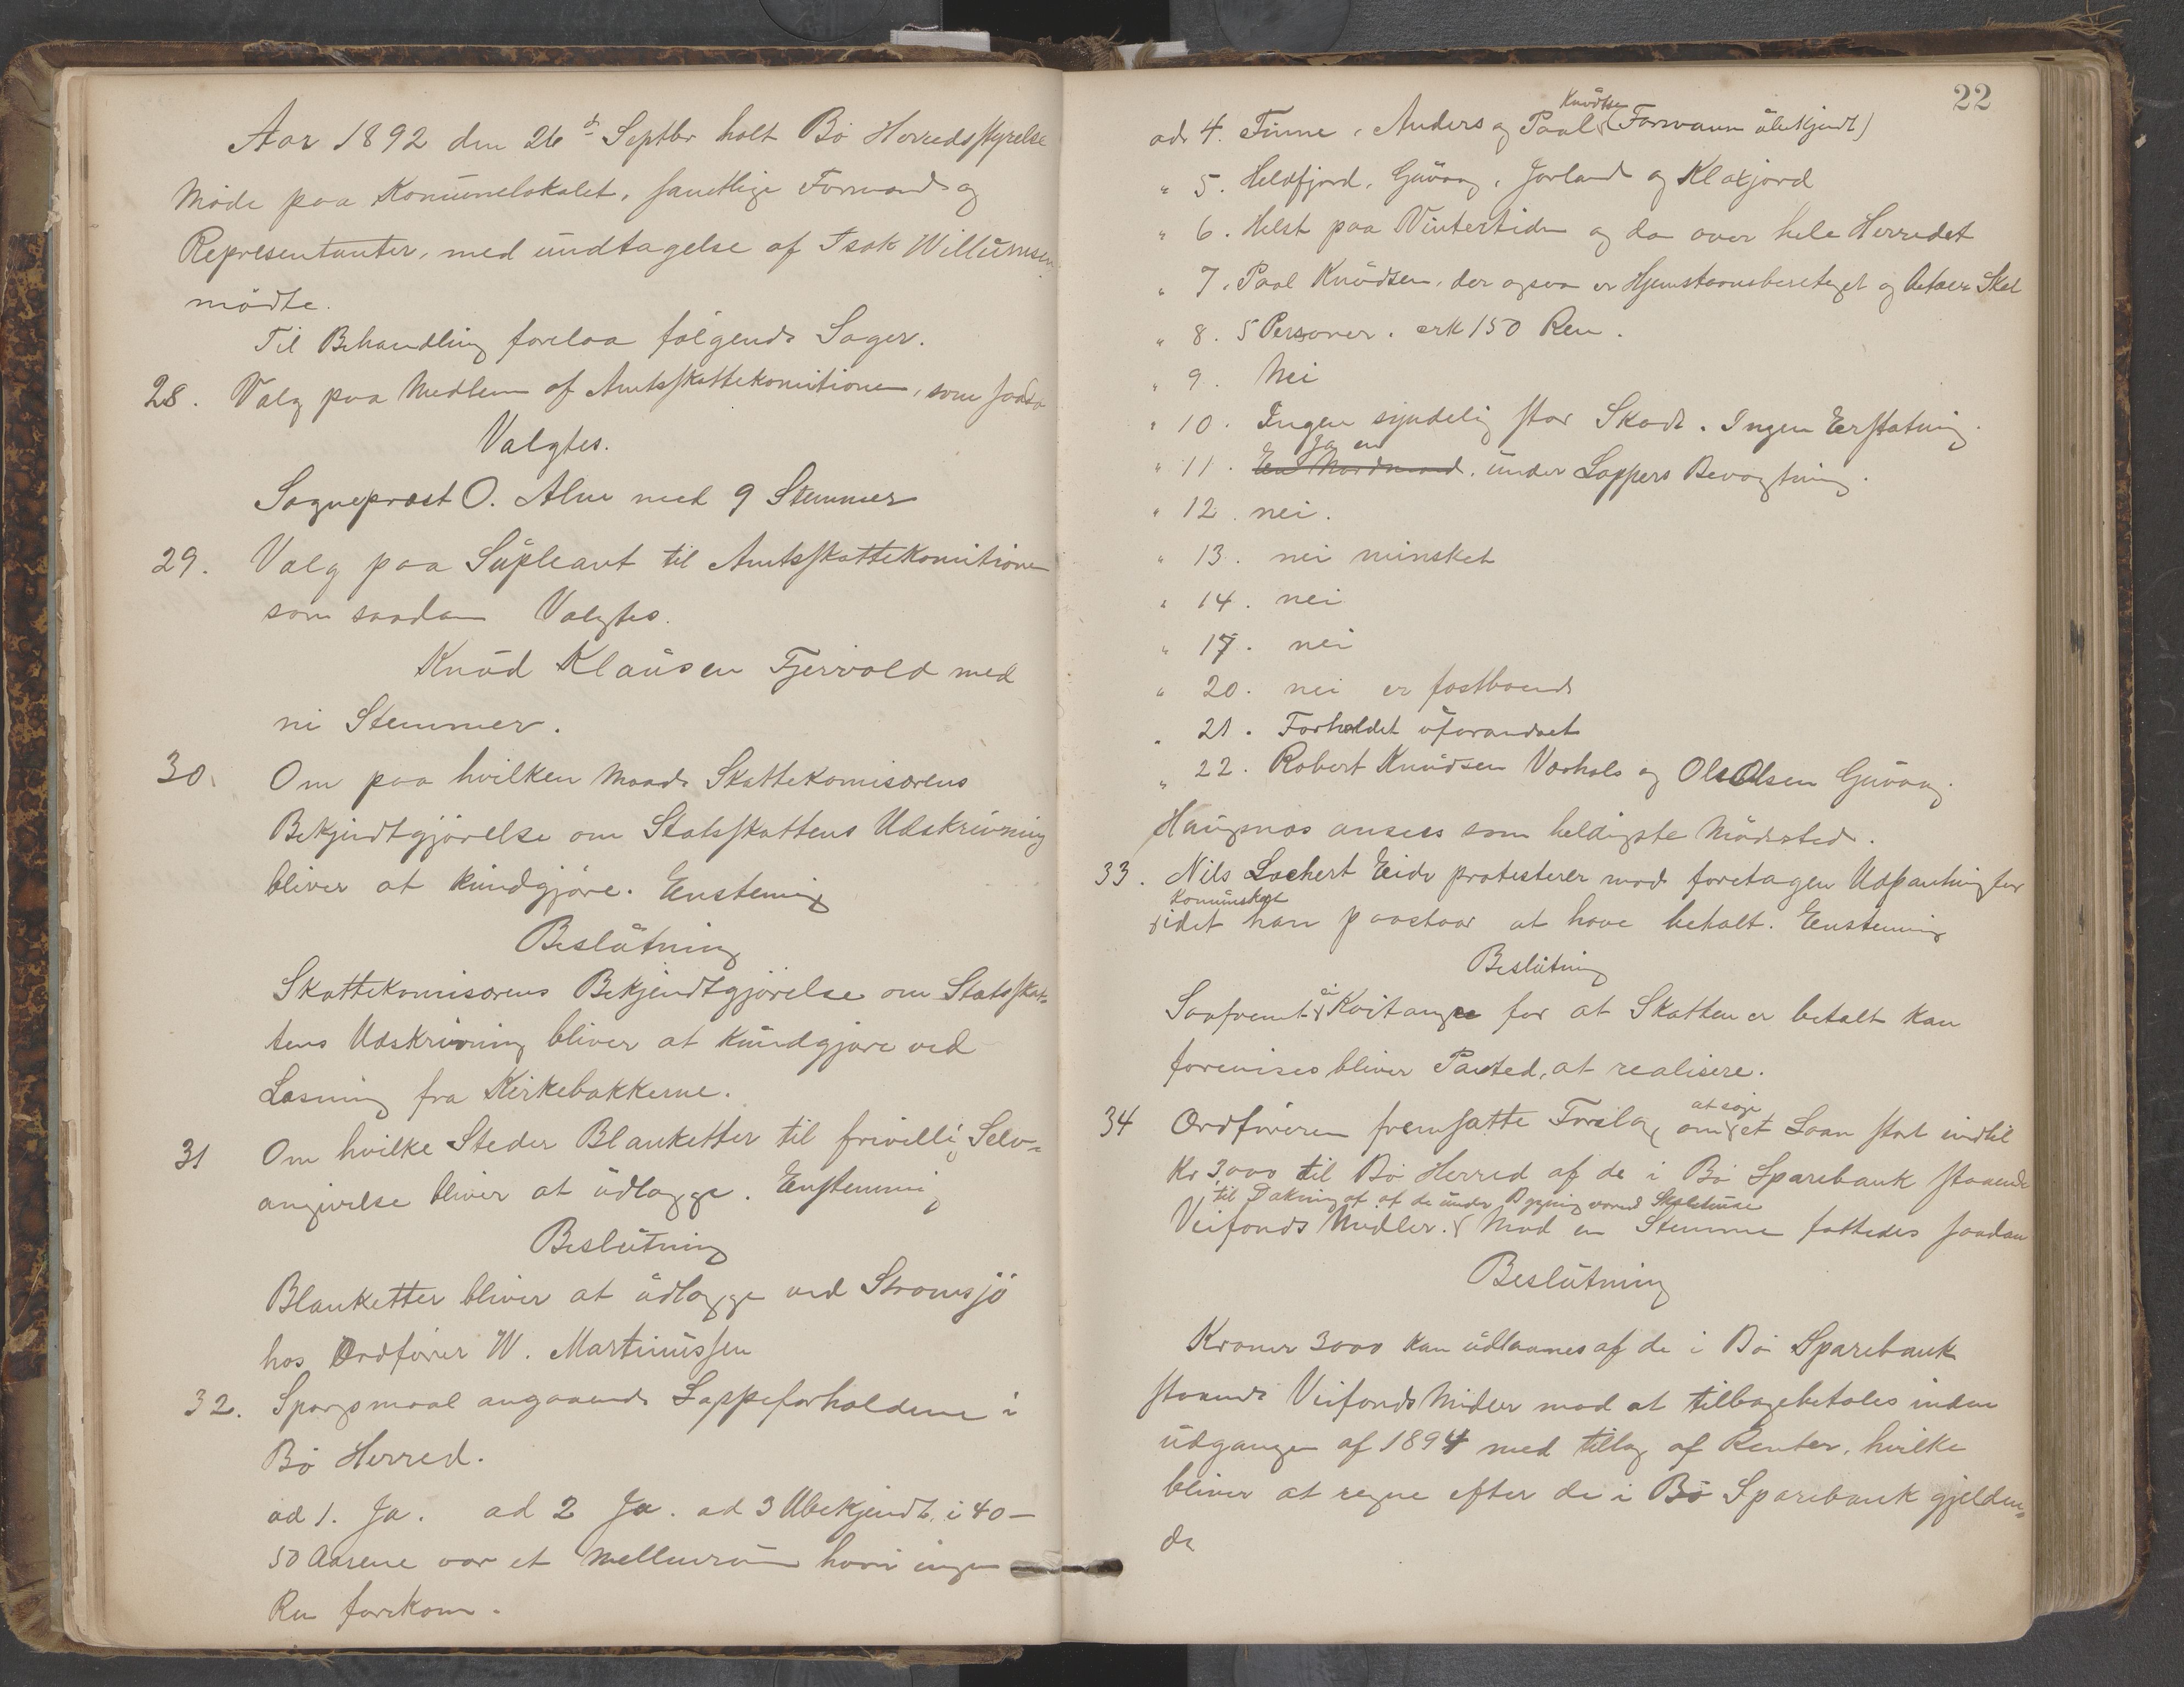 Aar 1892 den 26d Septbr holt Bö Herredsstyrelse
Möde paa Komunelokalet, samtlige Formænd og
Representanter, med undtagelse af Isak Willumsen
mödte.
Til Behandling forelaa fölgende Sager.
28. Valg paa Medlem af Amtsskattekomitionen, som saada
Valgtes.
Sogneprest O. Alm med 9 Stemmer
29. Valg paa Supleant til Amtsskattekomitionen
som saadan Valgtes.
Knud Klausen Fjervold med
ni Stemmer.
30. Om paa hvilken Maade Skattekomisærens
Bekjendtgjörelse om Statsskattens Udskrivning
bliver at kundgjöre. Enstemig
Beslutning
Skattekomisærens Bekjendtgjörelse om Statsskat-
tens Udskrivning bliver at kundgjöre ved
Læsning fra Kirkebakkerne.
31 Om hvilke Steder Blanketter til frivillig Selv-
angivelse bliver at udlægge. Enstemmig
Beslutning
Blanketter bliver at udlægge ved Straumsjö
hos Ordförer W. Martinussen
32. Spörgsmaal angaaende Lappeforholdene i
Bö Herred.
ad 1. Ja. ad 2 Ja. ad 3 Ubekjendt, i 40-
50 Aarene var et Mellemrum hvori ingen
Ren forekom.
22
Knudtsen
adr 4. Finne, Anders og Paal (Formann ubekjendt)
" 5. Heldfjord, Guvaag, Jorland og Klaxjord
" 6. Helst paa Vintertiden og da over hele Herredet
" 7. Paal Knudsen, der ogsaa er Hjemstavnsberetiget og betaler Skat
" 8. 5 Personer. crk 150 Ren.
" 9. Nei
" 10. Ingen synderlig stor Skade. Ingen Erstatning.
Ja en
" 11. En Nordmand, under Lappers Bevogtning.
" 12. nei.
" 13. nei minsket
" 14. nei
" 17. nei
" 20. nei er fastboende
" 21. Forholdet uforandret
" 22. Robert Knudsen Værhols og Ole Olsen Guvaag.
Haugsnes ansees som heldigste Mödested.
33. Nils Lochert Eide protesterer mod foretagen Udpantning for
Komuneskat
idet han paastaar at have betalt. Enstemmig
Beslutning
ei
Saafremt Kvitange for at Skatten er betalt kan
forevises bliver Panted, at realisere.
at söge
34 Ordföreren fremsatte Forslag om et Laan stort indtil
Kr 3000 til Bö Herred af de i Bö Sparebank staaende
til Dækning af af de under Bygning værende Skolehuse
Veifonds Midler. Mod en Stemme fattedes saadan
Beslutning
Kroner 3000 kan udlaanes af de i Bö Sparebank
staaende Veifonds Midler mod at tilbagebetales inden
udgangen af 1894 med tillæg af Renter, hvilke
bliver at regne efter de i Bö Sparebank gjelden-
de